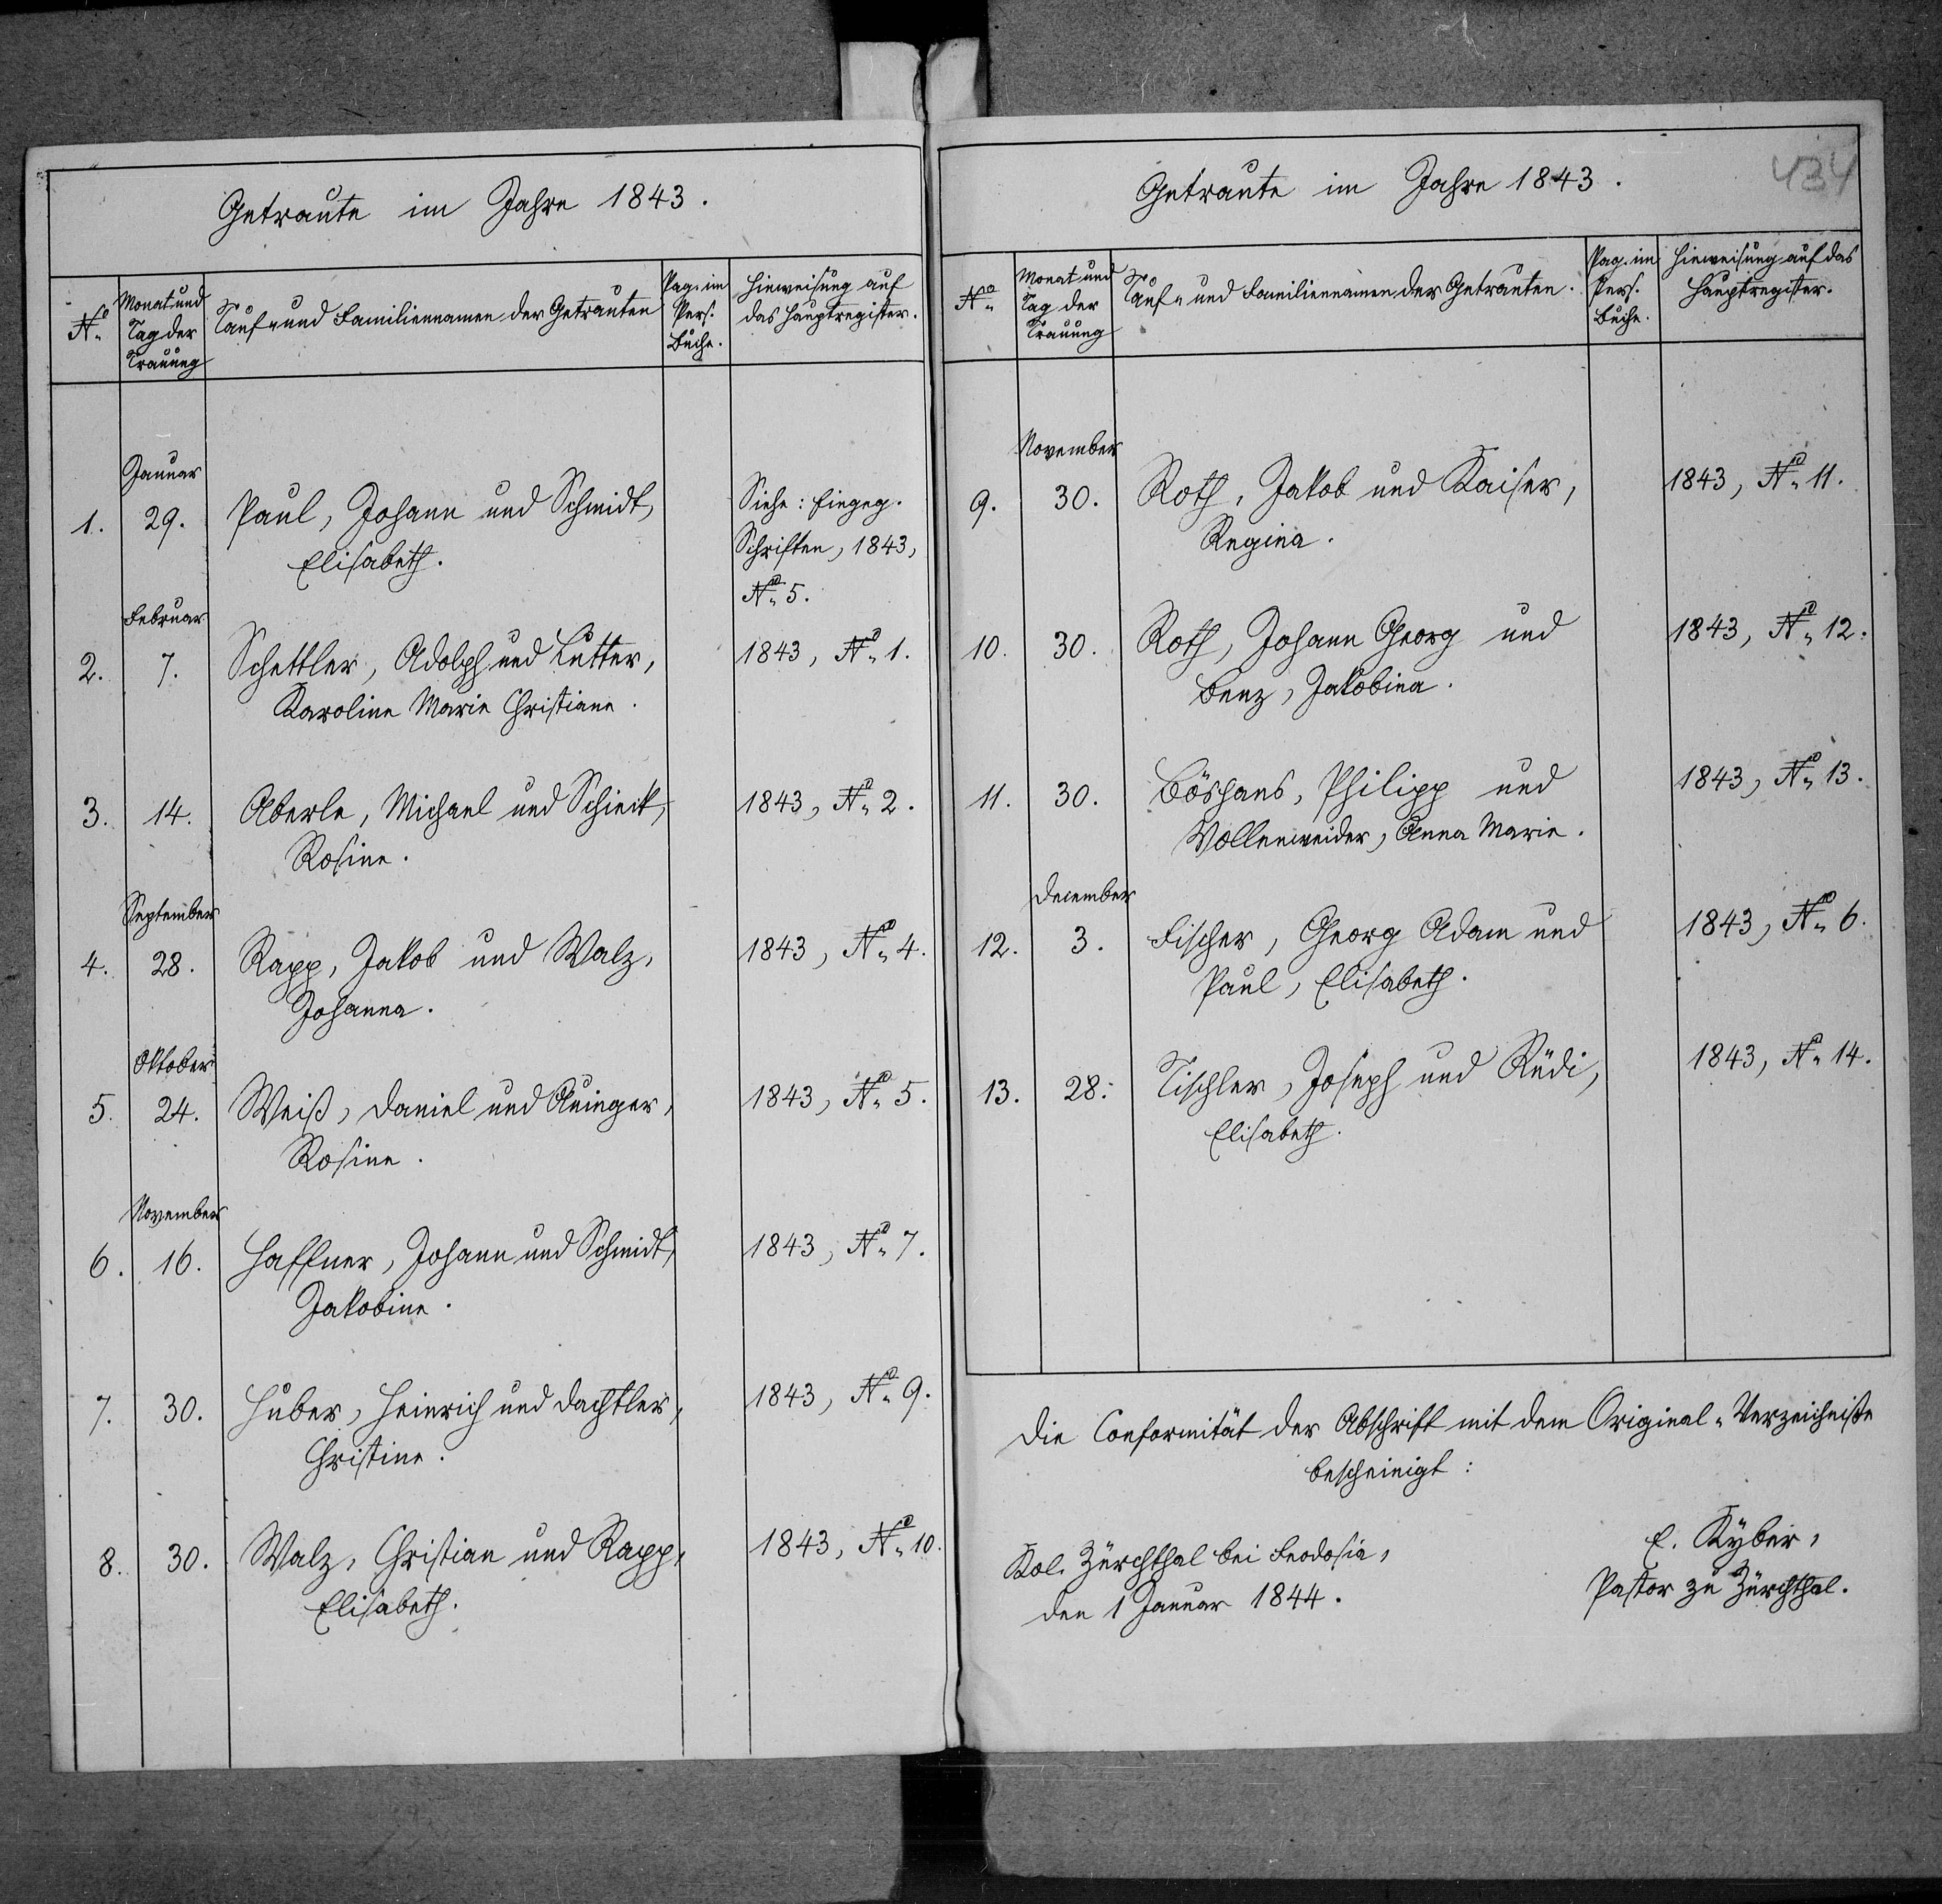 Getraute im Jahre 1843.
No.
Monat und
Tag der
Trauung
Tauf- und Familiennamen der Getrauten
Pag. im
Pers.
Buche.
Hinweisung auf
das Hauptregister.
Januar
1. 29. Paul, Johann und Schmidt, Siehe: Eingeg.
Elisabeth. Schriften, 1843,
No. 5.
Februar
2. 7. Schettler, Adolph und Lutter, 1843, No. 1.
Karoline Marie Christiane.
3. 14. Aberle, Michael und Schieck, 1843, No. 2.
Rosine.
September
4. 28. Rapp, Jakob und Walz, 1843, No. 4.
Johanna.
Oktober
5. 24. Weiß, Daniel und Auinger, 1843, No. 5.
Rosine.
November
6. 16. Haffner, Johann und Schmidt, 1843, No. 7.
Jakobine.
7. 30. Huber, Heinrich und Dachtler, 1843, No. 9.
Christine.
8. 30. Walz, Christian und Rapp, 1843, No. 10.
Elisabeth.
434
Getraute im Jahre 1843.
No.
Monat und
Tag der
Trauung
Tauf- und Familiennamen der Getrauten.
Pag. im
Pers.
Buche.
Hinweisung auf das
Hauptregister.
November
9. 30. Roth, Jakob und Kaiser, 1843, No. 11.
Regina.
10. 30. Roth, Johann Georg und 1843, No. 12.
Benz, Jakobina.
11. 30. Böshans, Philipp und 1843, No. 13.
Vollenweider, Anna Marie.
December
12. 3. Fischer, Georg Adam und 1843, No. 6.
Paul, Elisabeth.
13. 28. Tischler, Joseph und Rüdi, 1843, No. 14.
Elisabeth.
Die Conformität der Abschrift mit dem Original-Verzeichniße
bescheinigt:
Kol. Zürchthal bei Feodosia,
den 1 Januar 1844.
E. Kyber,
Pastor zu Zürchthal.